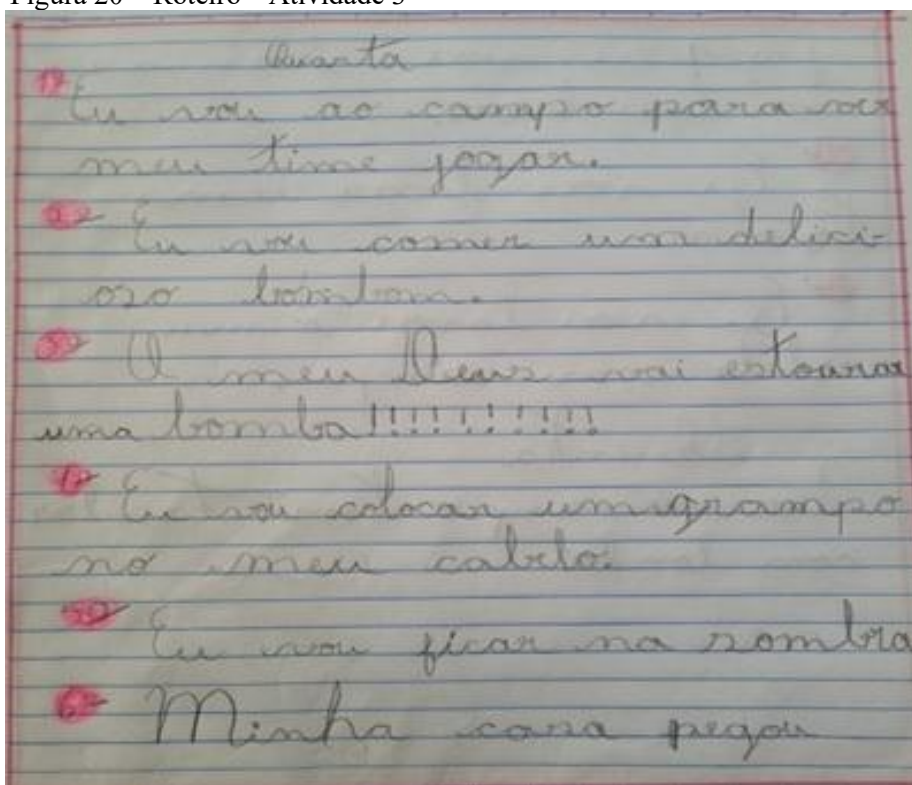 Figura 20 – Roteiro – Atividade 3
Quanta
1º
Eu vou ao campo para ver
meu time jogar.
2º Eu vou comer um delici-
ozo bombom.
3º O meu Deus vai estourar
uma bomba!!!!!!!!!!
4º Eu vou colocar um grampo
no meu cabelo.
5º Eu vou ficar na sombra
6º Minha casa pegou